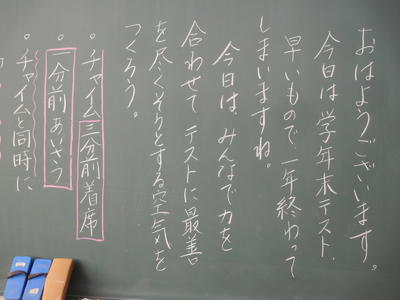 おはようございます。
今日は学年末テスト、
早いもので、一年終わって
しまいますね。
今日は、みんなで力を
合わせて テストに最善
を尽くそうとする空気を
つくろう。
。チャイム三分前着席
。一分前あいさつ
。チャイムと同時に